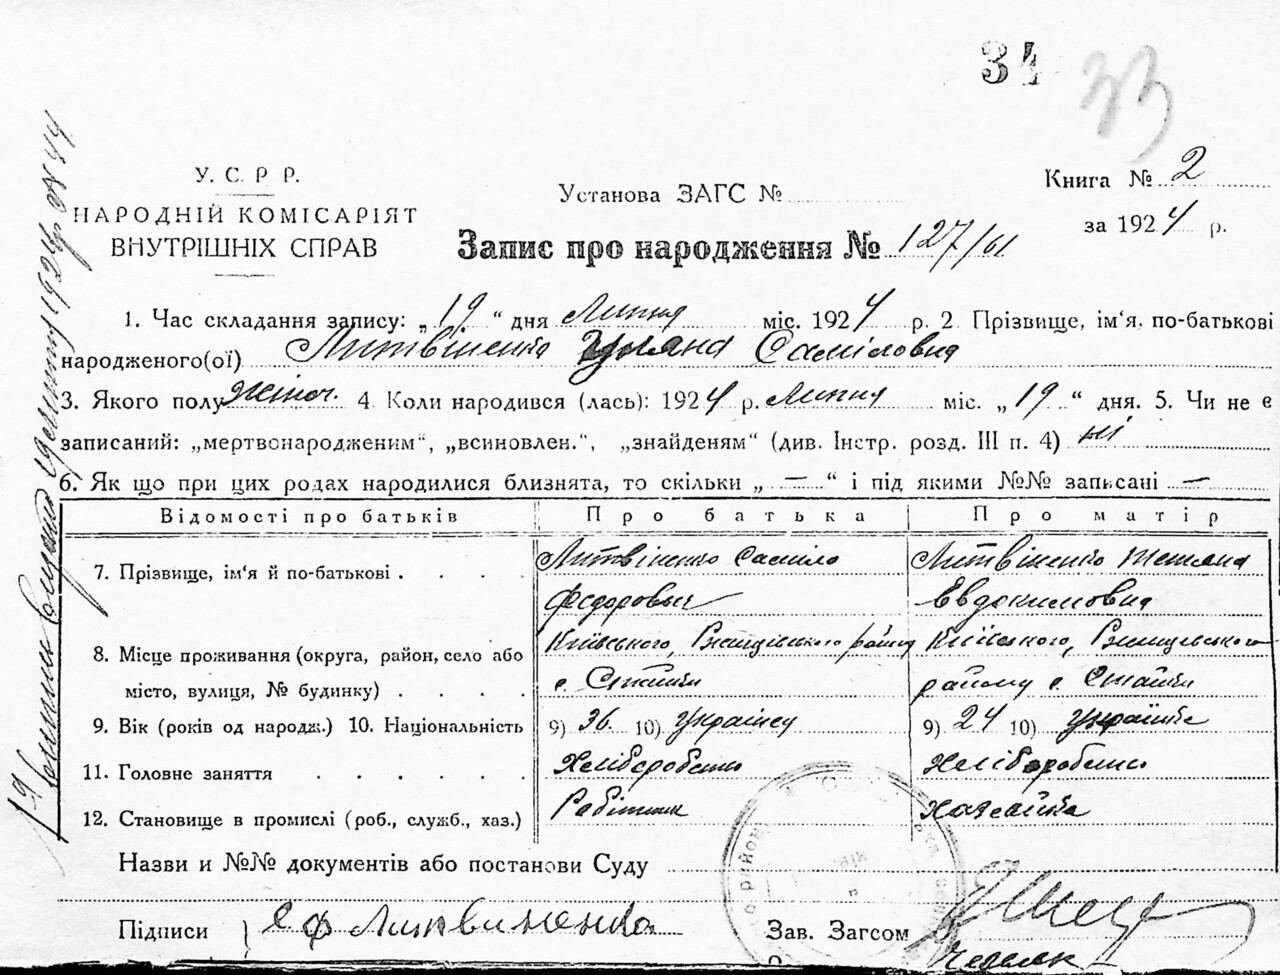 34
33
У. С. Р Р.
НАРОДНІЙ КОМІСАРІЯТ
ВНУТРІШНІХ СПРАВ
Установа ЗАГС №
Книга № 2
за 1924 р.
Запис про народження № 127/61
1. Час складання запису: „19" дня Липня міс. 1924 р. 2 Прізвище, ім'я, по-батькові
народженого(ої) Литвіненко Уляна Самиіловна
3. Якого полу жіноч. 4. Коли народився (лась): 1924 р. Липня міс. „19" дня. 5. Чи не є
записаний: „мертвонародженим", „всиновлен.", „знайденям" (див. Інстр. розд. III п. 4) ні
6. Як що при цих родах народилися близнята, то скільки „ — " і під якими №№ записані —
Відомості про батьків Про батька Про матір
7. Прізвище, ім'я й по-батькові . . . . Литвіненко Саміло Литвіненко Тетяна
Федорович Евдокимовна
8. Місце проживання (округа, район, село або Київського, Ржищівського району Київського, Ржищевського
місто, вулиця, № будинку) . . . . с. Стайки району с. Стайки
9. Вік (років од народж.) 10. Національність 9) 36. 10) Українец 9) 24 10) Українка
11. Головне заняття . . . . . Хліборобство Хліборобство
12. Становище в промислі (роб., служб., хаз.) Робітник Хазяйка
Назви и №№ документів або постанови Суду
Підписи } С Ф Литвиненко Зав. Загсом